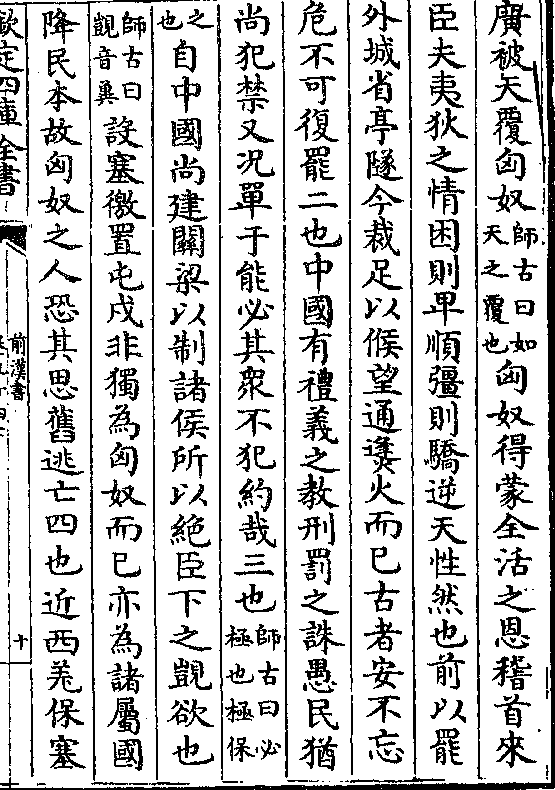 廣被天覆匈奴師古曰如天之覆也匈奴得蒙全活之恩稽首來
臣夫夷狄之情困則卑順彊則驕逆天性然也前以罷
外城省亭隧今裁足以候望通㷭火而已古者安不忘
危不可復罷二也中國有禮義之教刑罰之誅愚民猶
尚犯禁又况單于能必其衆不犯約哉三也師古曰必極也極保
之也自中國尚建關梁以制諸侯所以絶臣下之覬欲也
師古曰覬音冀設塞徼置屯戍非獨為匈奴而已亦為諸屬國
降民本故匈奴之人恐其思舊逃亡四也近西羌保塞
欽定四庫全書
前漢書
十